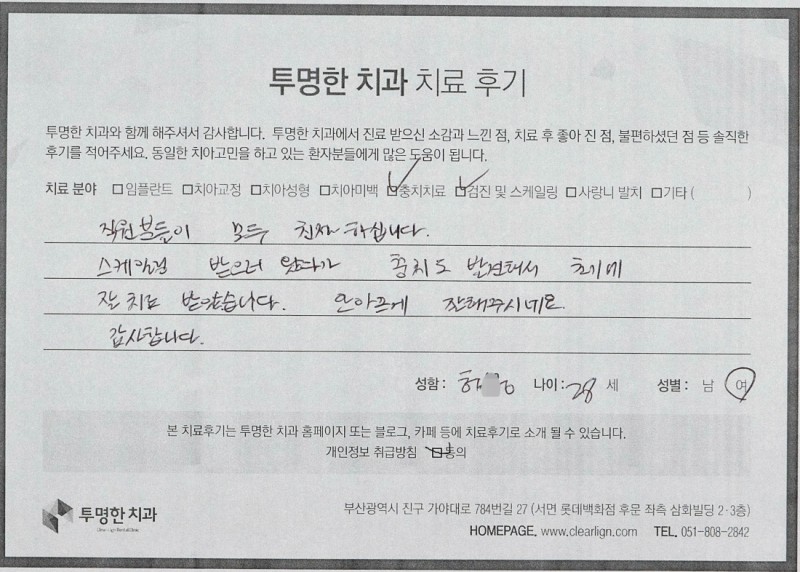 투명한 치과 치료 후기
투명한 치과와 함께 해주셔서 감사합니다. 투명한 치과에서 진료 받으신 소감과 느낀 점, 치료 후 좋아 진 점, 불편하셨던 점 등 솔직한
후기를 적어주세요. 동일한 치아고민을 하고 있는 환자분들에게 많은 도움이 됩니다.
치료 분야 □임플란트 □치아교정 □치아성형 □치아미백 ☑충치치료 ☑검진 및 스케일링 □사랑니 발치 □기타 ( )
직원분들이 모두 친절하십니다.
스케일링 받으러 왔다가 충치도 발견돼서 초기에
잘 치료 받았습니다. 안아프게 잘해주시네요
감사합니다.
성함 : 나이 : 28 세 성별 : 남 여
본 치료후기는 투명한 치과 홈페이지 또는 블로그, 카페 등에 치료후기로 소개 될 수 있습니다.
개인정보 취급방침 ☑동의
투명한 치과
부산광역시 진구 가야대로 784번길 27 (서면 롯데백화점 후문 좌측 삼화빌딩 2·3층)
HOMEPAGE. www.clearlign.com TEL. 051-808-2842